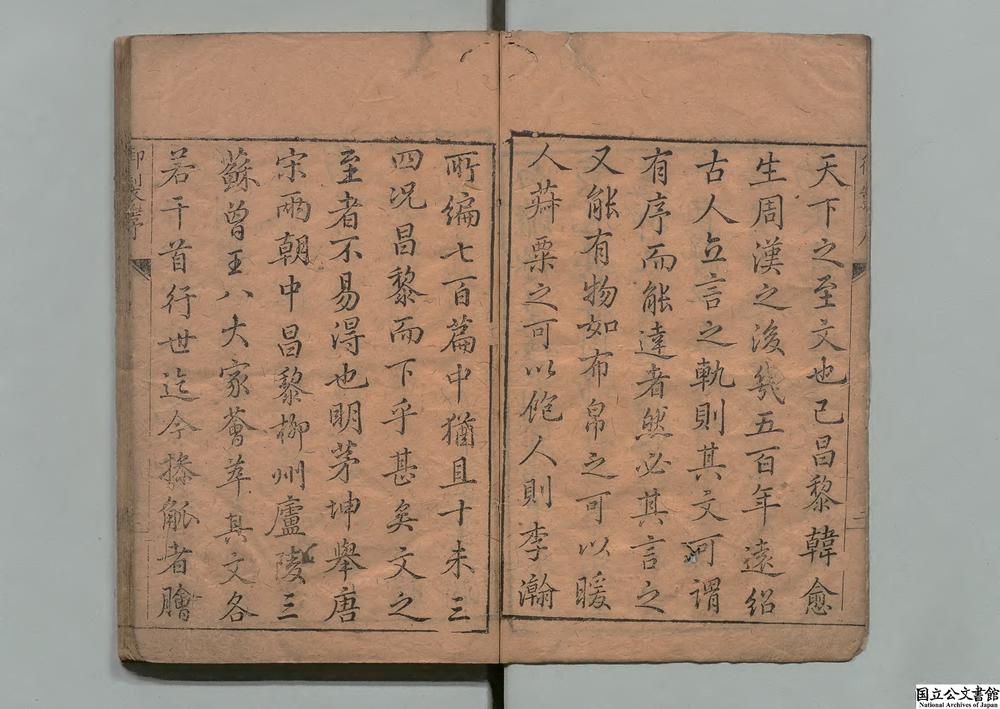 天下之至文也已昌黎韓愈
生周漢之後幾五百年遠紹
古人立言之軌則其文可謂
有序而能達者然必其言之
又能有物如布帛之可以暖
人菽粟之可以飽人則李瀚
所編七百篇中猶且十未三
四況昌黎而下乎甚矣文之
至者不易得也明茅坤舉唐
宋兩朝中昌黎柳州廬陵三
蘇曾王八大家薈萃其文各
若干首行世迄今操觚者膾
国立公文書館
National Archives of Japan